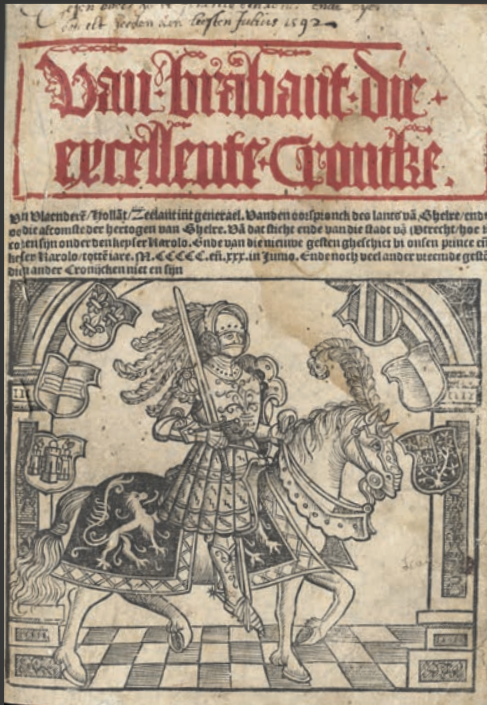 den lesten Julius 1592
Van·brabant·die·
excellente·Cronike.
vñ Vlaenderẽ/Hollãt/Zeelant int generael. Vanden oorspronck des lants vã Ghelre/ende
oec die afcomste der hertogen van Ghelre. Vã dat sticht ende van die stadt vã wtrecht/hoe
comen sijn onder den keyser Karolo. Ende van die nieuwe gesten gheschict bi onsen prince eñ
keyser Karolo/tottẽ iare. M.CCCCC.eñ.xxx.in Junio. Ende noch veel ander vreemde
die in ander Cronijcken niet en sijn